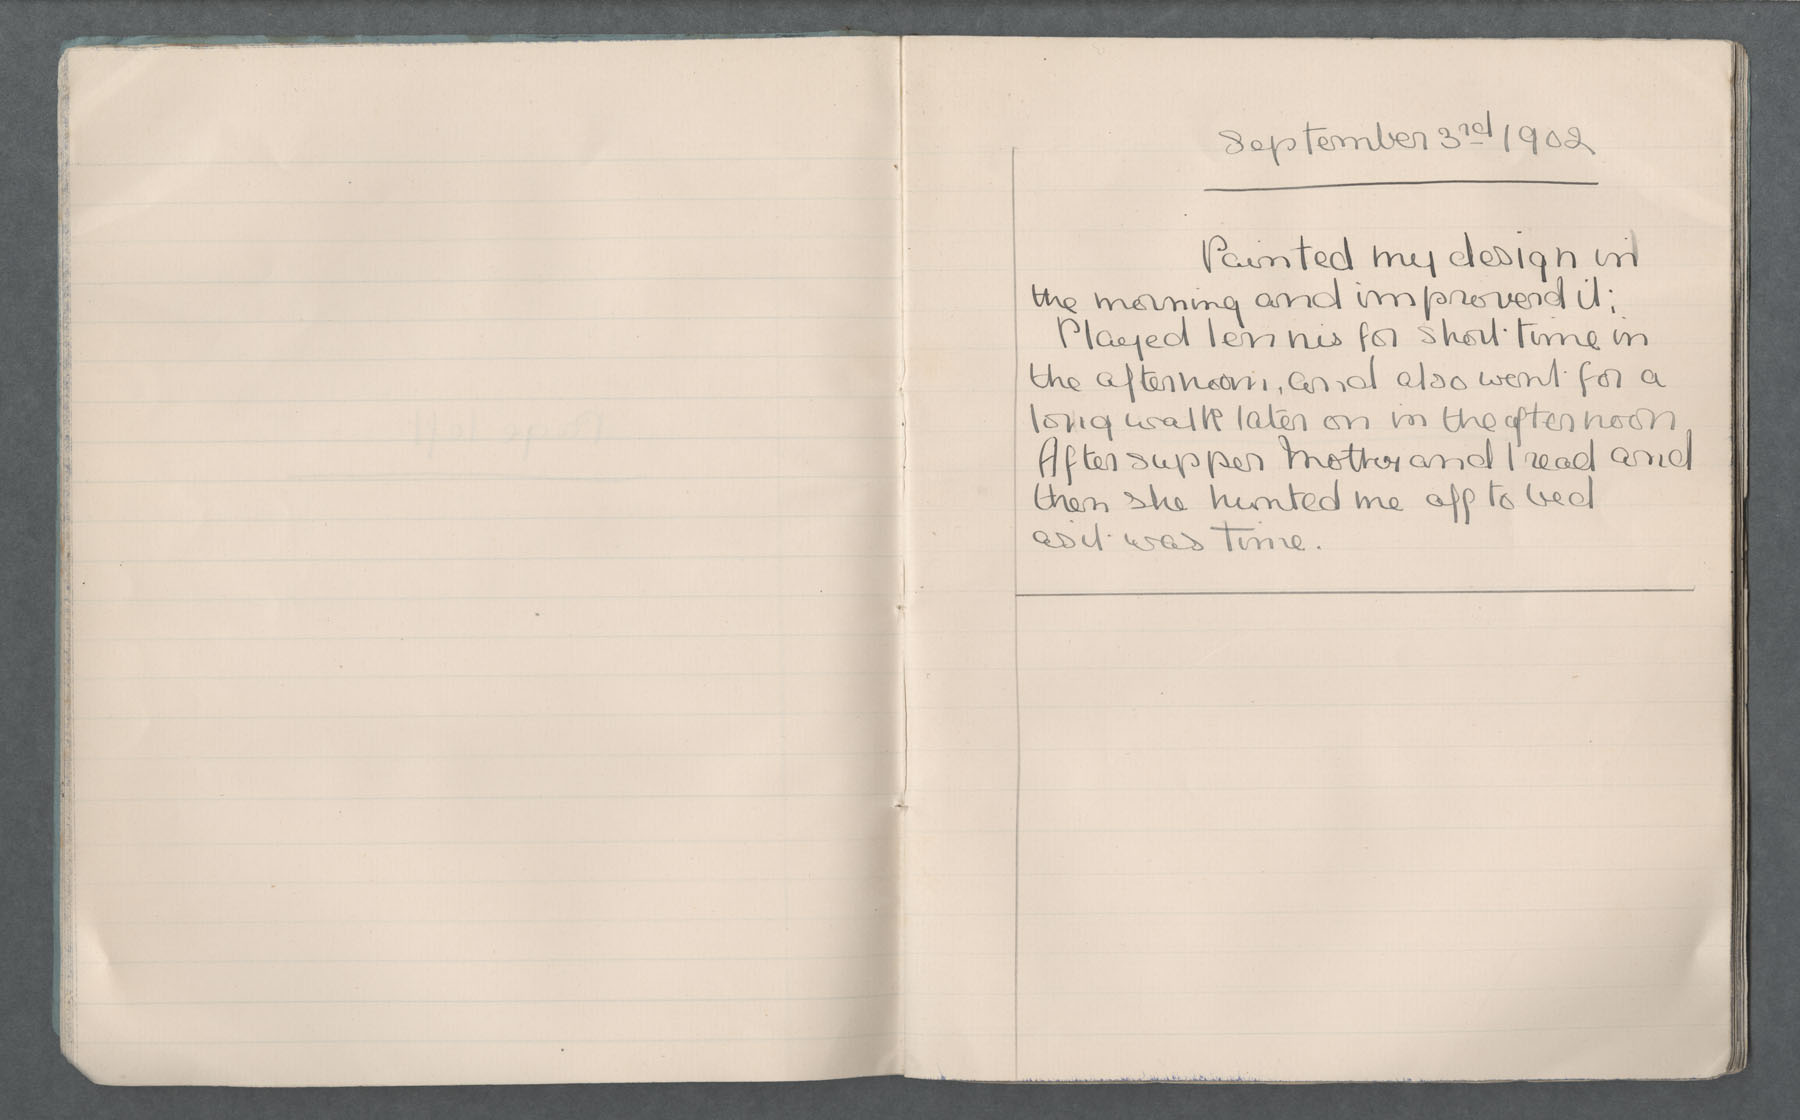 September 3rd 1902
Painted my design in
the morning and improved it;
Played tennis for short time in
the afternoon, and also went for a
long walk later on in the afternoon
After supper Mother and I read and
then she hunted me off to bed
as it was time.